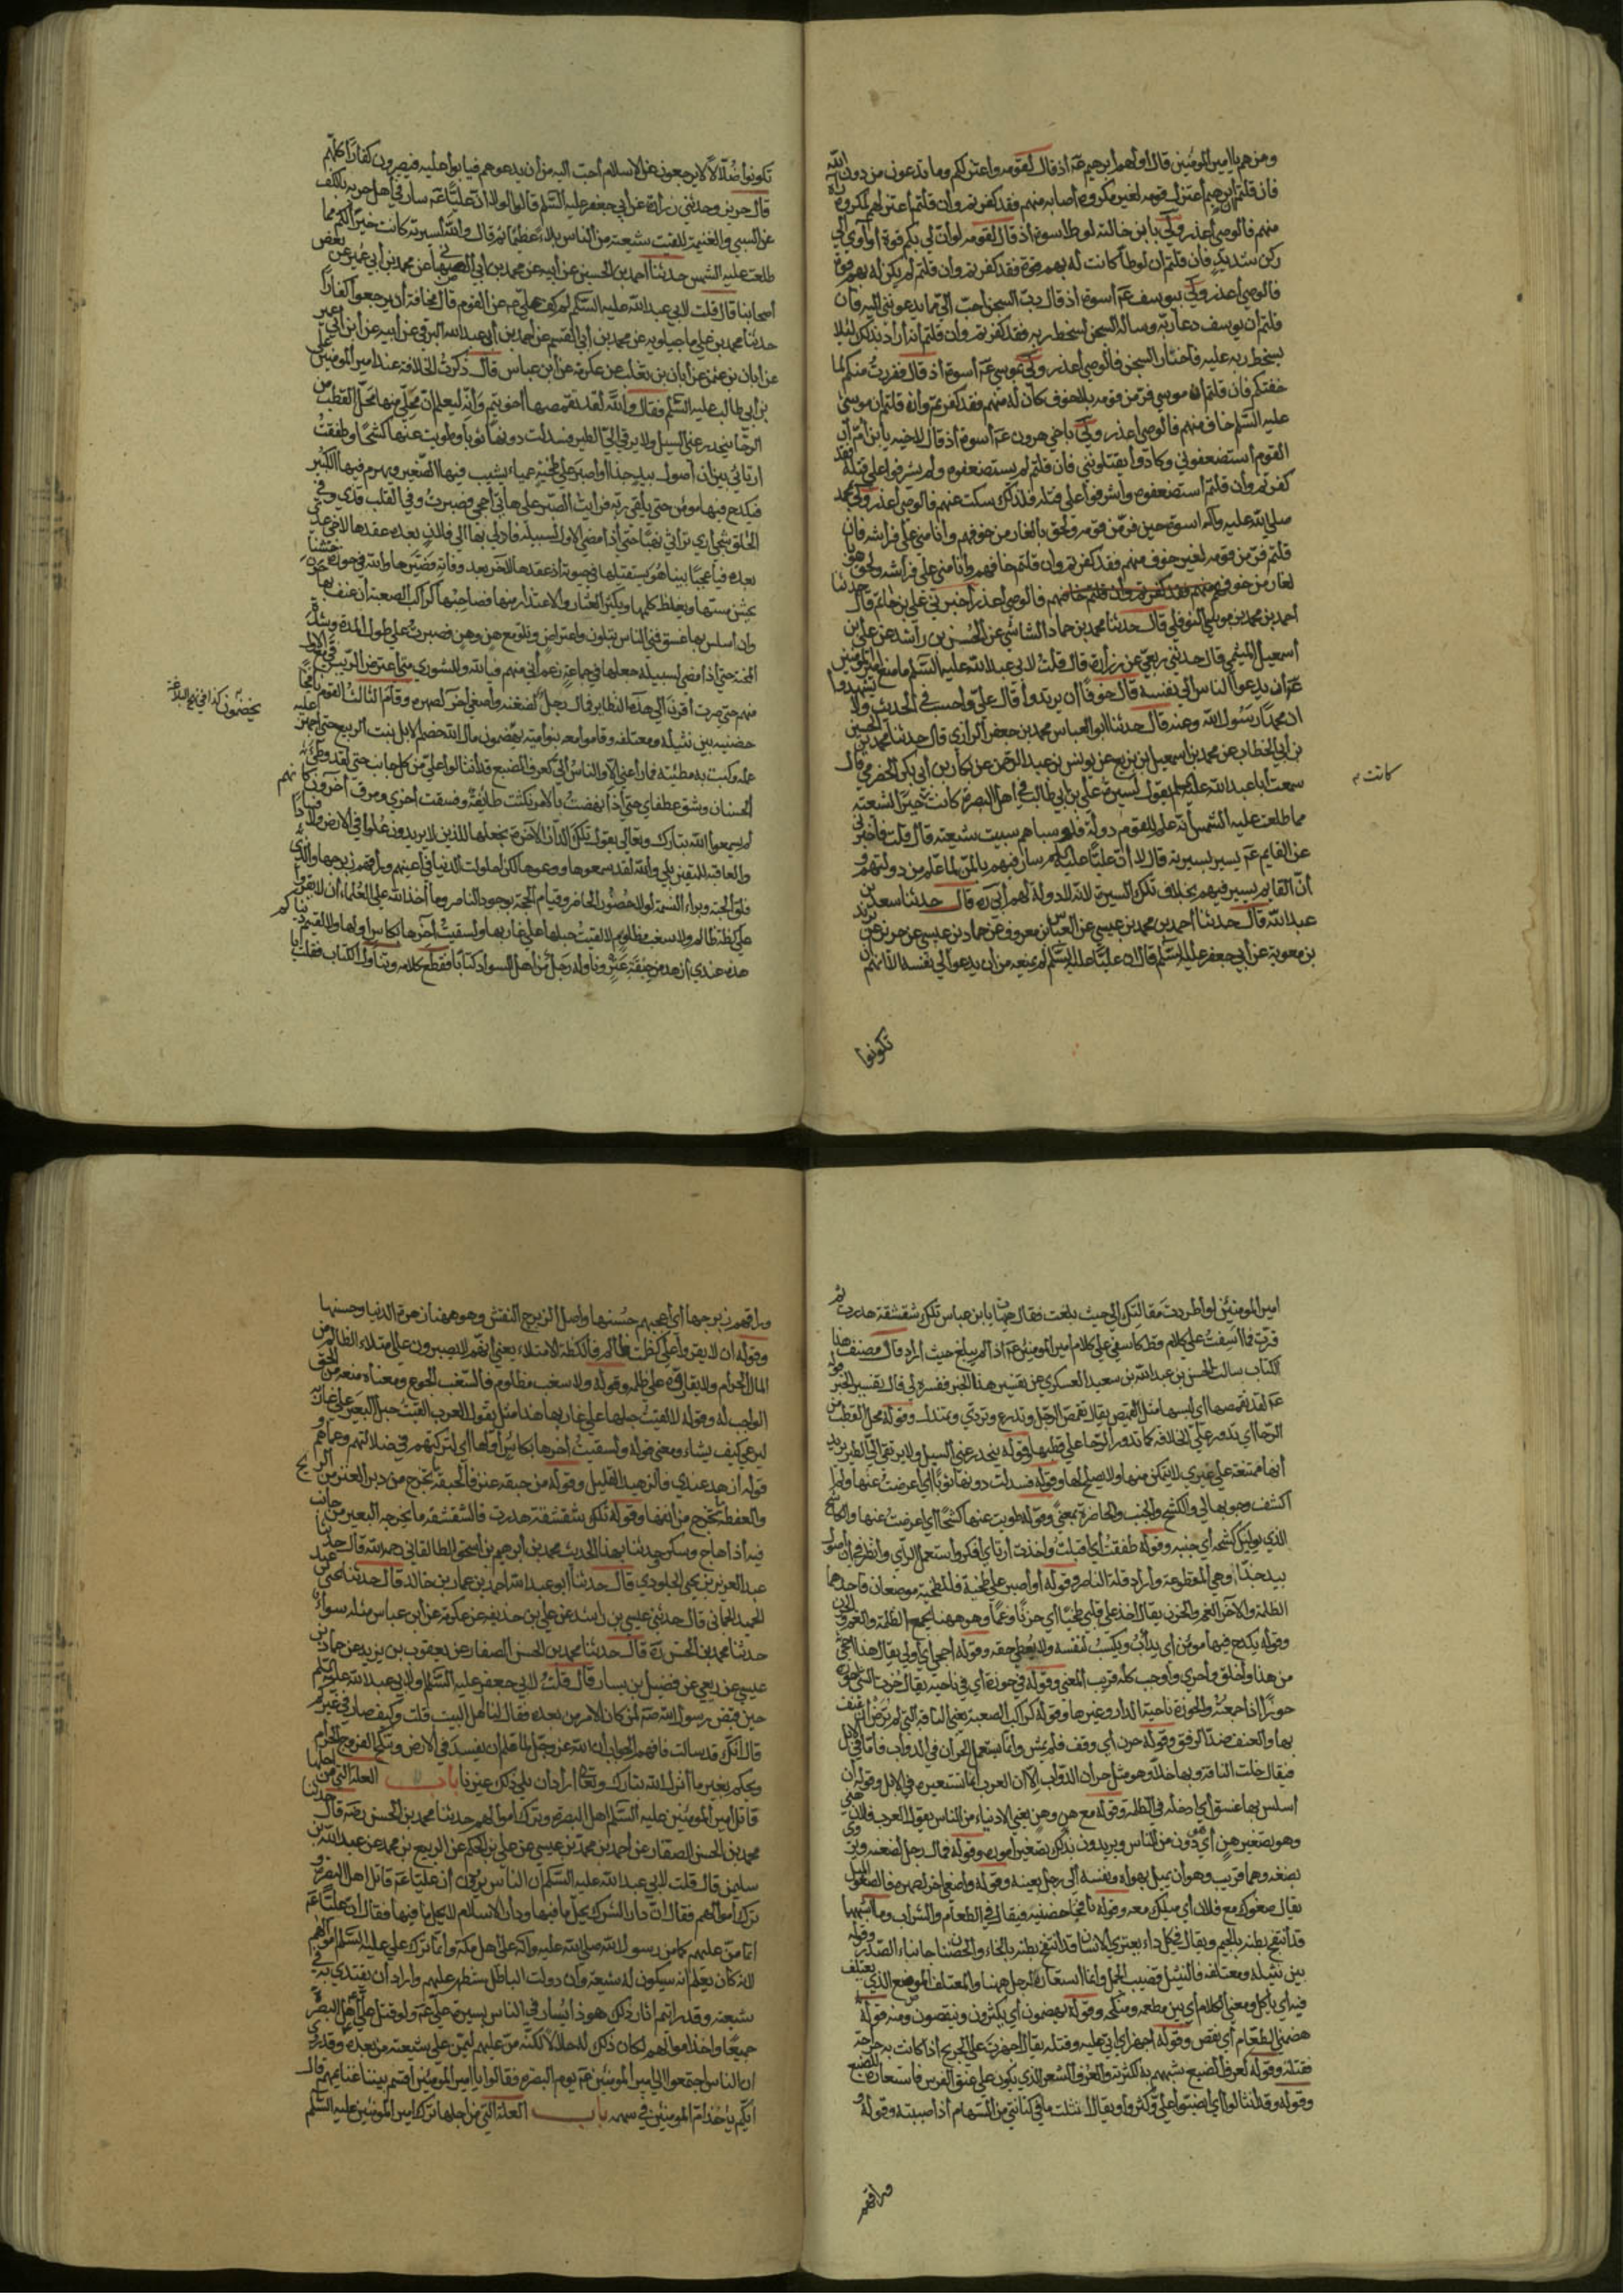 ومن هم يا امير المؤمنين قال اولهم ابرهيم عم اذ قال لقومه واعتزلكم وما تدعون من دون الله
فان قلتم ان ابرهيم اعتزل قومه لغير مكروه اصابه منهم فقد كفرتم وان قلتم اعتزلهم لمكروه راه
منهم فالوصي اعذر ولي بابن خالته لوط اسوة اذ قال لقومه لو ان لي بكم قوة او آوي الى
ركن شديد فان قلتم ان لوطا كانت له بهم قوة فقد كفرتم وان قلتم لم يكن له بهم قوة
فالوصي اعذر ولي بيوسف عم اسوة اذ قال رب السجن احب الي مما يدعونني اليه فان
قلتم ان يوسف دعا ربه وساله السجن لسخط ربه فقد كفرتم وان قلتم انه اراد بذلك لئلا
يسخط ربه عليه فاختار السجن فالوصي اعذر ولي بموسى عم اسوة اذ قال ففررت منكم لما
خفتكم فان قلتم ان موسى فر من قومه بلا خوف كان له منهم فقد كفرتم وان قلتم ان موسى
عليه السلم خاف منهم فالوصي اعذر ولي باخي هرون عم اسوة اذ قال لاخيه يا بن ام ان
القوم استضعفوني وكادوا يقتلونني فان قلتم لم يستضعفوه ولم يشرفوا على قتله فقد
كفرتم وان قلتم استضعفوه واشرفوا على قتله فلذلك سكت عنهم فالوصي اعذر ولي بمحمد
صلى الله عليه وآله اسوة حين فر من قومه ولحق بالغار من خوفهم وانامني على فراشه فان
قلتم فر من قومه لغير خوف منهم فقد كفرتم وان قلتم خافهم وانامني على فراشه ولحق هو با
لغار من خوفهم فالوصي اعذر اخبرني علي بن حاتم قال حدثنا
احمد بن محمد بن موسى النوفلي قال حدثنا محمد بن حماد الشاشي عن الحسين بن راشد عن علي بن
اسمعيل الميثمي قال حدثني ربعي عن زرارة قال قلت لابي عبد الله عليه السلم ما منع امير المؤمنين
عم ان يدعوا الناس الى نفسه قال خوفا ان يرتدوا قال علي واحسب في الحديث ولا يشهدوا
ان محمدا رسول الله وعنه قال حدثنا ابو العباس محمد بن جعفر الرازي قال حدثنا محمد بن الحسين
بن ابي الخطاب عن محمد بن اسمعيل بن بزيع عن يونس بن عبد الرحمن عن بكار بن ابي بكر الحضرمي قال
سمعت ابا عبد الله عليه السلم يقول لسيرة علي بن ابي طالب في اهل البصرة كانت خيرا لشيعته
كانت
مما طلعت عليه الشمس انه علم ان للقوم دولة فلو سباهم سبيت شيعته قال قلت فاخبرني
عن القايم عم يسير بسيرته قال لا ان عليا عليه السلم سار فيهم بالمن لما علم من دولتهم و
ان القايم يسير فيهم بخلاف تلك السيرة لانه لا دولة لهم ابي ره قال حدثنا سعد بن
عبد الله قال حدثنا احمد بن محمد بن عيسى عن العباس بن معروف عن حماد بن عيسى عن حريز عن بريد
بن معوية عن ابي جعفر عليه السلم قال ان عليا عليه السلم لم يمنعه من ان يدعوا الى نفسه الا انهم ان
تكونوا
تكونوا ضلالا لا يرجعون عن الاسلام احب اليه من ان يدعوهم فيابوا عليه فيصيرون كفارا كلهم
قال حريز وحدثني زرارة عن ابي جعفر عليه السلم قال لولا ان عليا عم سار في اهل حربه بالكف
عن السبي والغنيمة للقيت شيعته من الناس بلاء عظيما ثم قال والله لسيرته كانت خيرا لكم مما
طلعت عليه الشمس حدثنا احمد بن الحسين عن ابيه عن محمد بن ابي الصهبان عن محمد بن ابي عمير عن بعض
اصحابنا قال قلت لابي عبد الله عليه السلم لم كف علي عم عن القوم قال مخافة ان يرجعوا كفارا
حدثنا محمد بن علي ماجيلويه عن محمد بن ابي القسم عن احمد بن ابي عبد الله البرقي عن ابيه عن ابن ابي عمير
عن ابان بن عثمن عن ابان بن تغلب عن عكرمة عن ابن عباس قال ذكرت الخلافة عند امير المؤمنين علي
بن ابي طالب عليه السلم فقال والله لقد تقمصها اخو تيم وانه ليعلم ان محلي منها محل القطب من
الرحا ينحدر عني السيل ولا يرقى الي الطير فسدلت دونها ثوبا وطويت عنها كشحا وطفقت
ارتاي بين ان اصول بيد جذا او اصبر على طخية عمياء يشيب فيها الصغير ويهرم فيها الكبير
فيكدح فيها مؤمن حتى يلقى ربه فرايت الصبر على هاتى احجى فصبرت وفي القلب قذى وفي
الحلق شجى ارى تراثي نهبا حتى اذا مضى الاول لسبيله فادلى بها الى فلان بعده عقدها لاخي عدي
بعده فيا عجبا بينا هو يستقيلها في حيوته اذ عقدها لآخر بعد وفاته فصيرها والله في حوزة خشنا
يخشن مسها ويغلظ كلمها ويكثر العثار والاعتذار منها فصاحبها كراكب الصعبة ان عنف بها حرن
وان اسلس بها غسق فمني الناس بتلون واعتراض وبلوى مع هن وهن فصبرت على طول المدة وشدة
المحنة حتى اذا مضى لسبيله جعلها في جماعة زعم اني منهم فيالله وللشورى متى اعترض الريب في مع الاول
منهم حتى صرت اقرن الى هذه النظاير فمال رجل لضغنه واصغى آخر لصهره وقام الثالث القوم نافجا
حضنيه بين نثيله ومعتلفه وقاموا معه بنو اميه يهضمون مال الله خضم الابل نبت الربيع حتى اجهز عليه
يخضمون كذا في نهج البلاغة
عمله وكبت به مطيته فما راعني الا والناس الي كعرف الضبع قد انثالوا علي من كل جانب حتى لقد وطئ
الحسنان وشق عطفاي حتى اذا نهضت بالامر نكثت طائفة وفسقت اخرى ومرق آخرون كانهم
لم يسمعوا الله تبارك وتعالى يقول تلك الدار الآخرة نجعلها للذين لا يريدون علوا في الارض ولا فسادا
والعاقبة للمتقين بلى والله لقد سمعوها ووعوها لكن احلولت الدنيا في اعينهم وراقهم زبرجها والذي
فلق الحبة وبراء النسمة لولا حضور الحاضر وقيام الحجة بوجود الناصر وما اخذ الله على العلماء ان لا يقروا
على كظة ظالم ولا سغب مظلوم لالقيت حبلها على غاربها ولسقيت آخرها بكاس اولها ولالفيتم دنياكم
هذه عندي ازهد من حبقة عنز وناوله رجل من اهل السواد كتابا فقطع كلامه وتناول الكتاب فقلت يا
امير المؤمنين لو اطردت مقالتك الى حيث بلغت فقال هيهات يا بن عباس تلك شقشقة هدرت ثم
قرت فما اسفت على كلام قط كاسفي على كلام امير المؤمنين عم اذ لم يبلغ حيث اراد قال مصنف هذا
الكتاب سالت الحسن بن عبد الله بن سعيد العسكري عن تفسير هذا الخبر ففسره لي قال تفسير الخبر قوله
عم لقد تقمصها اي لبسها مثل القميص يقال تقمص الرجل وتدرع وتردى وتمندل وقوله محل القطب من
الرحا اي تدور علي الخلافة كما تدور الرحا على قطبها وقوله ينحدر عني السيل ولا يرتقي الي الطير يريد
انها ممتنعة على غيري لا يتمكن منها ولا يصلح لها وقوله فسدلت دونها ثوبا اي اعرضت عنها ولم
اكشف وجوبها لي والكشح والجنب والخاصرة بمعنى وقوله طويت عنها كشحا اي اعرضت عنها والكاشح
الذي يوليك كشحه اي جنبه وقوله طفقت اي اقبلت واخذت ارتاي افكر واستعمل الراي وانظر في ان اصول
بيد جذا وهي المقطوعة واراد قلة الناصر وقوله او اصبر على طخية فللطخية موضعان فاحدهما
الظلمة والآخر الغم والحزن يقال اجد على قلبي طخيا اي حزنا وغما وهو ههنا يجمع الظلمة والغم والحزن
وقوله يكدح فيها مؤمن اي يداب ويكسب لنفسه ولا يعطى حقه وقوله احجى اي اولى يقال هذا احجى
من هذا واخلق واحرى واوجب كله قريب المعنى وقوله في حوزة اي في ناحية يقال حزت الشيء احوزه
حوزا اذا جمعته والحوزة ناحية الدار وغيرها وقوله كراكب الصعبة يعني الناقة التي لم ترض ان عنف
بها والعنف ضد الرفق وقوله حرن اي وقف فلم يمش وانما يستعمل الحران في الدواب فاما في الابل
فيقال خلت الناقة وبها خلاء وهو مثل حران الدواب الا ان العرب انما تستعيره في الابل وقوله ان
اسلس بها غسق اي ادخله في الظلمة وقوله مع هن وهن يعني الادنياء من الناس يقول العرب فلان هني
وهو تصغير هن اي دون من الناس ويريدون بذلك تصغير امره وقوله فمال رجل لضغنه ويروى
بضغنه وهما قريب وهو ان يميل بهواه ونفسه الى رجل بعينه وقوله واصغى آخر لصهره فالصغو الميل
يقال صغوك مع فلان اي ميلك معه وقوله نافجا حضنيه فيقال في الطعام والشراب وما اشبهها
قد انتفج بطنه بالجيم ويقال في كل داء يعتري الانسان قد انتفخ بطنه بالخاء والحضنان جانباء الصدر وقوله
بين نثيله ومعتلفه فالنثيل قضيب الجمل وانما استعاره للرجل ههنا والمعتلف الموضع الذي يعتلف
فيه اي ياكل ومعنى الكلام اي بين مطعمه ومنكحه وقوله يهضمون اي يكثرون وينقصون ومنه قوله
هضمني الطعام اي نقص وقوله اجهز اي اتى عليه وقتله يقال اجهزت على الجريح اذا كانت به جراحة
فقتلته وقوله كعرف الضبع شبههم به لكثرته والعرف الشعر الذي يكون على عنق الفرس فاستعاره للضبع
وقوله وقد انثالوا اي انصبوا علي وكثروا ويقال انثلت ما في كنانتي من السهام اذا صببته وقوله
وراقهم
وراقهم زبرجها اي اعجبهم حسنها واصل الزبرج النقش وهو ههنا زهرة الدنيا وحسنها
وقوله ان لا يقروا على كظة ظالم فالكظة الامتلاء يعني انهم لا يصبرون على امتلاء الظالم من
المال الحرام ولا يقاروه على ظلمه وقوله ولا سغب مظلوم فالسغب الجوع ومعناه منعه من الحق
الواجب له وقوله لالقيت حبلها على غاربها هذا مثل يقول العرب القيت حبل البعير على غاربه
ليرعى كيف يشاء ومعنى قوله ولسقيت آخرها بكاس اولها اي لتركتهم في ضلالتهم وعماهم و
قوله ازهد عندي فالزهيد القليل وقوله من حبقة عنز فالحبقة ما يخرج من دبر العنز من الريح
والعفطة ما يخرج من انفها وقوله تلك شقشقة هدرت فالشقشقة ما يخرجه البعير من جانب
فيه اذا هاج وسكر وحدثنا بهذا الحديث محمد بن ابرهيم بن اسحق الطالقاني رحمه الله قال حدثنا
عبد العزيز بن يحيى الجلودي قال حدثنا ابو عبد الله احمد بن عمار بن خالد قال حدثنا يحيى بن عبد
الحميد الحماني قال حدثني عيسى بن راشد عن علي بن حذيفة عن عكرمة عن ابن عباس مثله سواء
حدثنا محمد بن الحسن ره قال حدثنا محمد بن الحسن الصفار عن يعقوب بن يزيد عن حماد بن
عيسى عن ربعي عن فضيل بن يسار قال قلت لابي جعفر عليه السلم او لابي عبد الله عليه السلم
حين قبض رسول الله صه لمن كان الامر من بعده فقال لنا اهل البيت قلت وكيف صار في غيركم
قال انك قد سالت فافهم الجواب ان الله عز وجل لما علم ان يفسد في الارض وتنكح الفروج الحرام
ويحكم بغير ما انزل الله تبارك وتعالى اراد ان يلي ذلك غيرنا باب العلة التي من اجلها
قاتل امير المؤمنين عليه السلم اهل البصرة وترك اموالهم حدثنا محمد بن الحسن رضه قال حدثنا
محمد بن الحسن الصفار عن احمد بن محمد بن عيسى عن علي بن الحكم عن الربيع بن محمد عن عبد الله بن
سليمن قال قلت لابي عبد الله عليه السلم ان الناس يروون ان عليا عم قاتل اهل البصرة و
ترك اموالهم فقال ان دار الشرك يحل ما فيها ودار الاسلام لا يحل ما فيها فقال ان عليا عم
انما من عليهم كما من رسول الله صلى الله عليه وآله على اهل مكة وانما ترك علي عليه السلم اموالهم
لانه كان يعلم انه سيكون له شيعة وان دولة الباطل ستظهر عليهم واراد ان يقتدى به في
شيعته وقد رايتم آثار ذلك هو ذا يسار في الناس بسيرة علي عم ولو قتل علي عم اهل البصرة
جميعا واخذ اموالهم لكان ذلك له حلالا لكنه من عليهم ليمن على شيعته من بعده وقد روي
ان الناس اجتمعوا الى امير المؤمنين عم يوم البصرة فقالوا يا امير المؤمنين اقسم بيننا غنايمهم قال
ايكم ياخذ ام المؤمنين في سهمه باب العلة التي من اجلها ترك امير المؤمنين عليه السلم